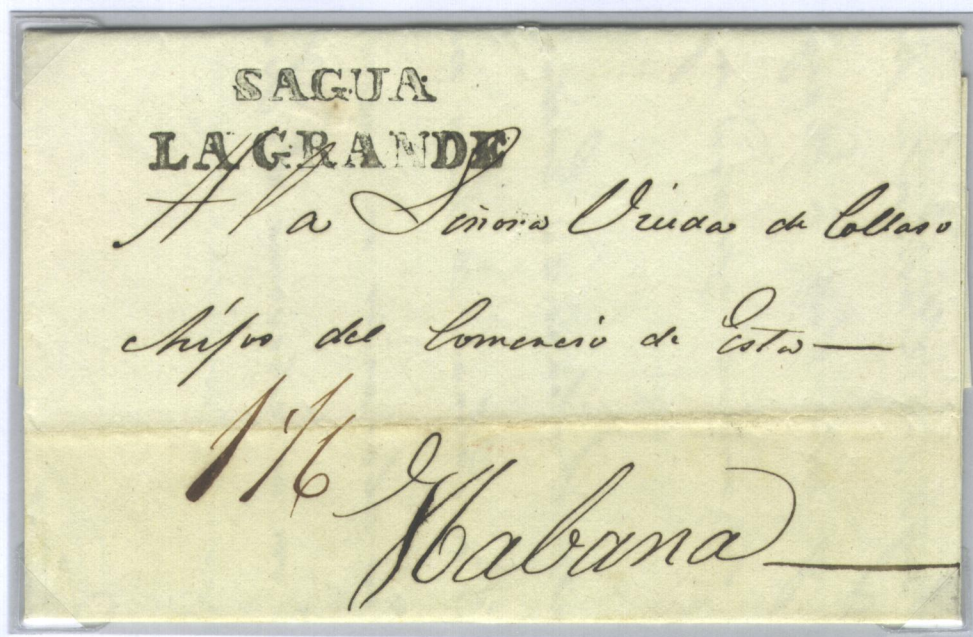 SAGUA
LA GRANDE
A la Señora Viuda de Collaso
é hijos del Comercio de Esta
Habana